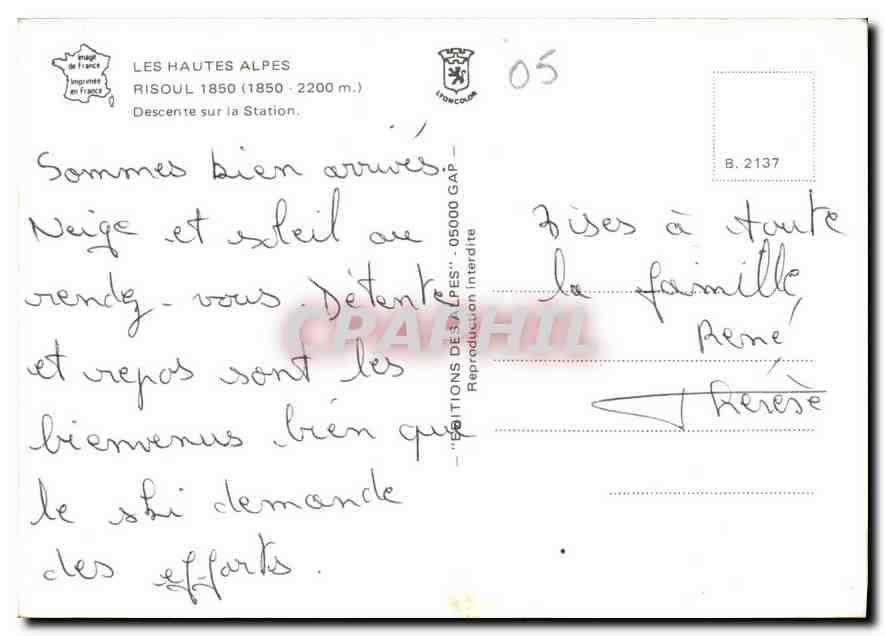 Image
de France
Imprimée
en France
LES HAUTES ALPES
RISOUL 1850 (1850 - 2200 m.)
Descente sur la Station.
LYONCOLOR
05
B. 2137
Sommes bien arrivés.
Neige et soleil au
rendez-vous. Détente
et repos sont les
bienvenus bien que
le ski demande
des efforts.
— "EDITIONS DES ALPES" - 05000 GAP —
Reproduction interdite
Bises à toute
la famille
René
Thérèse
CPAPHIL